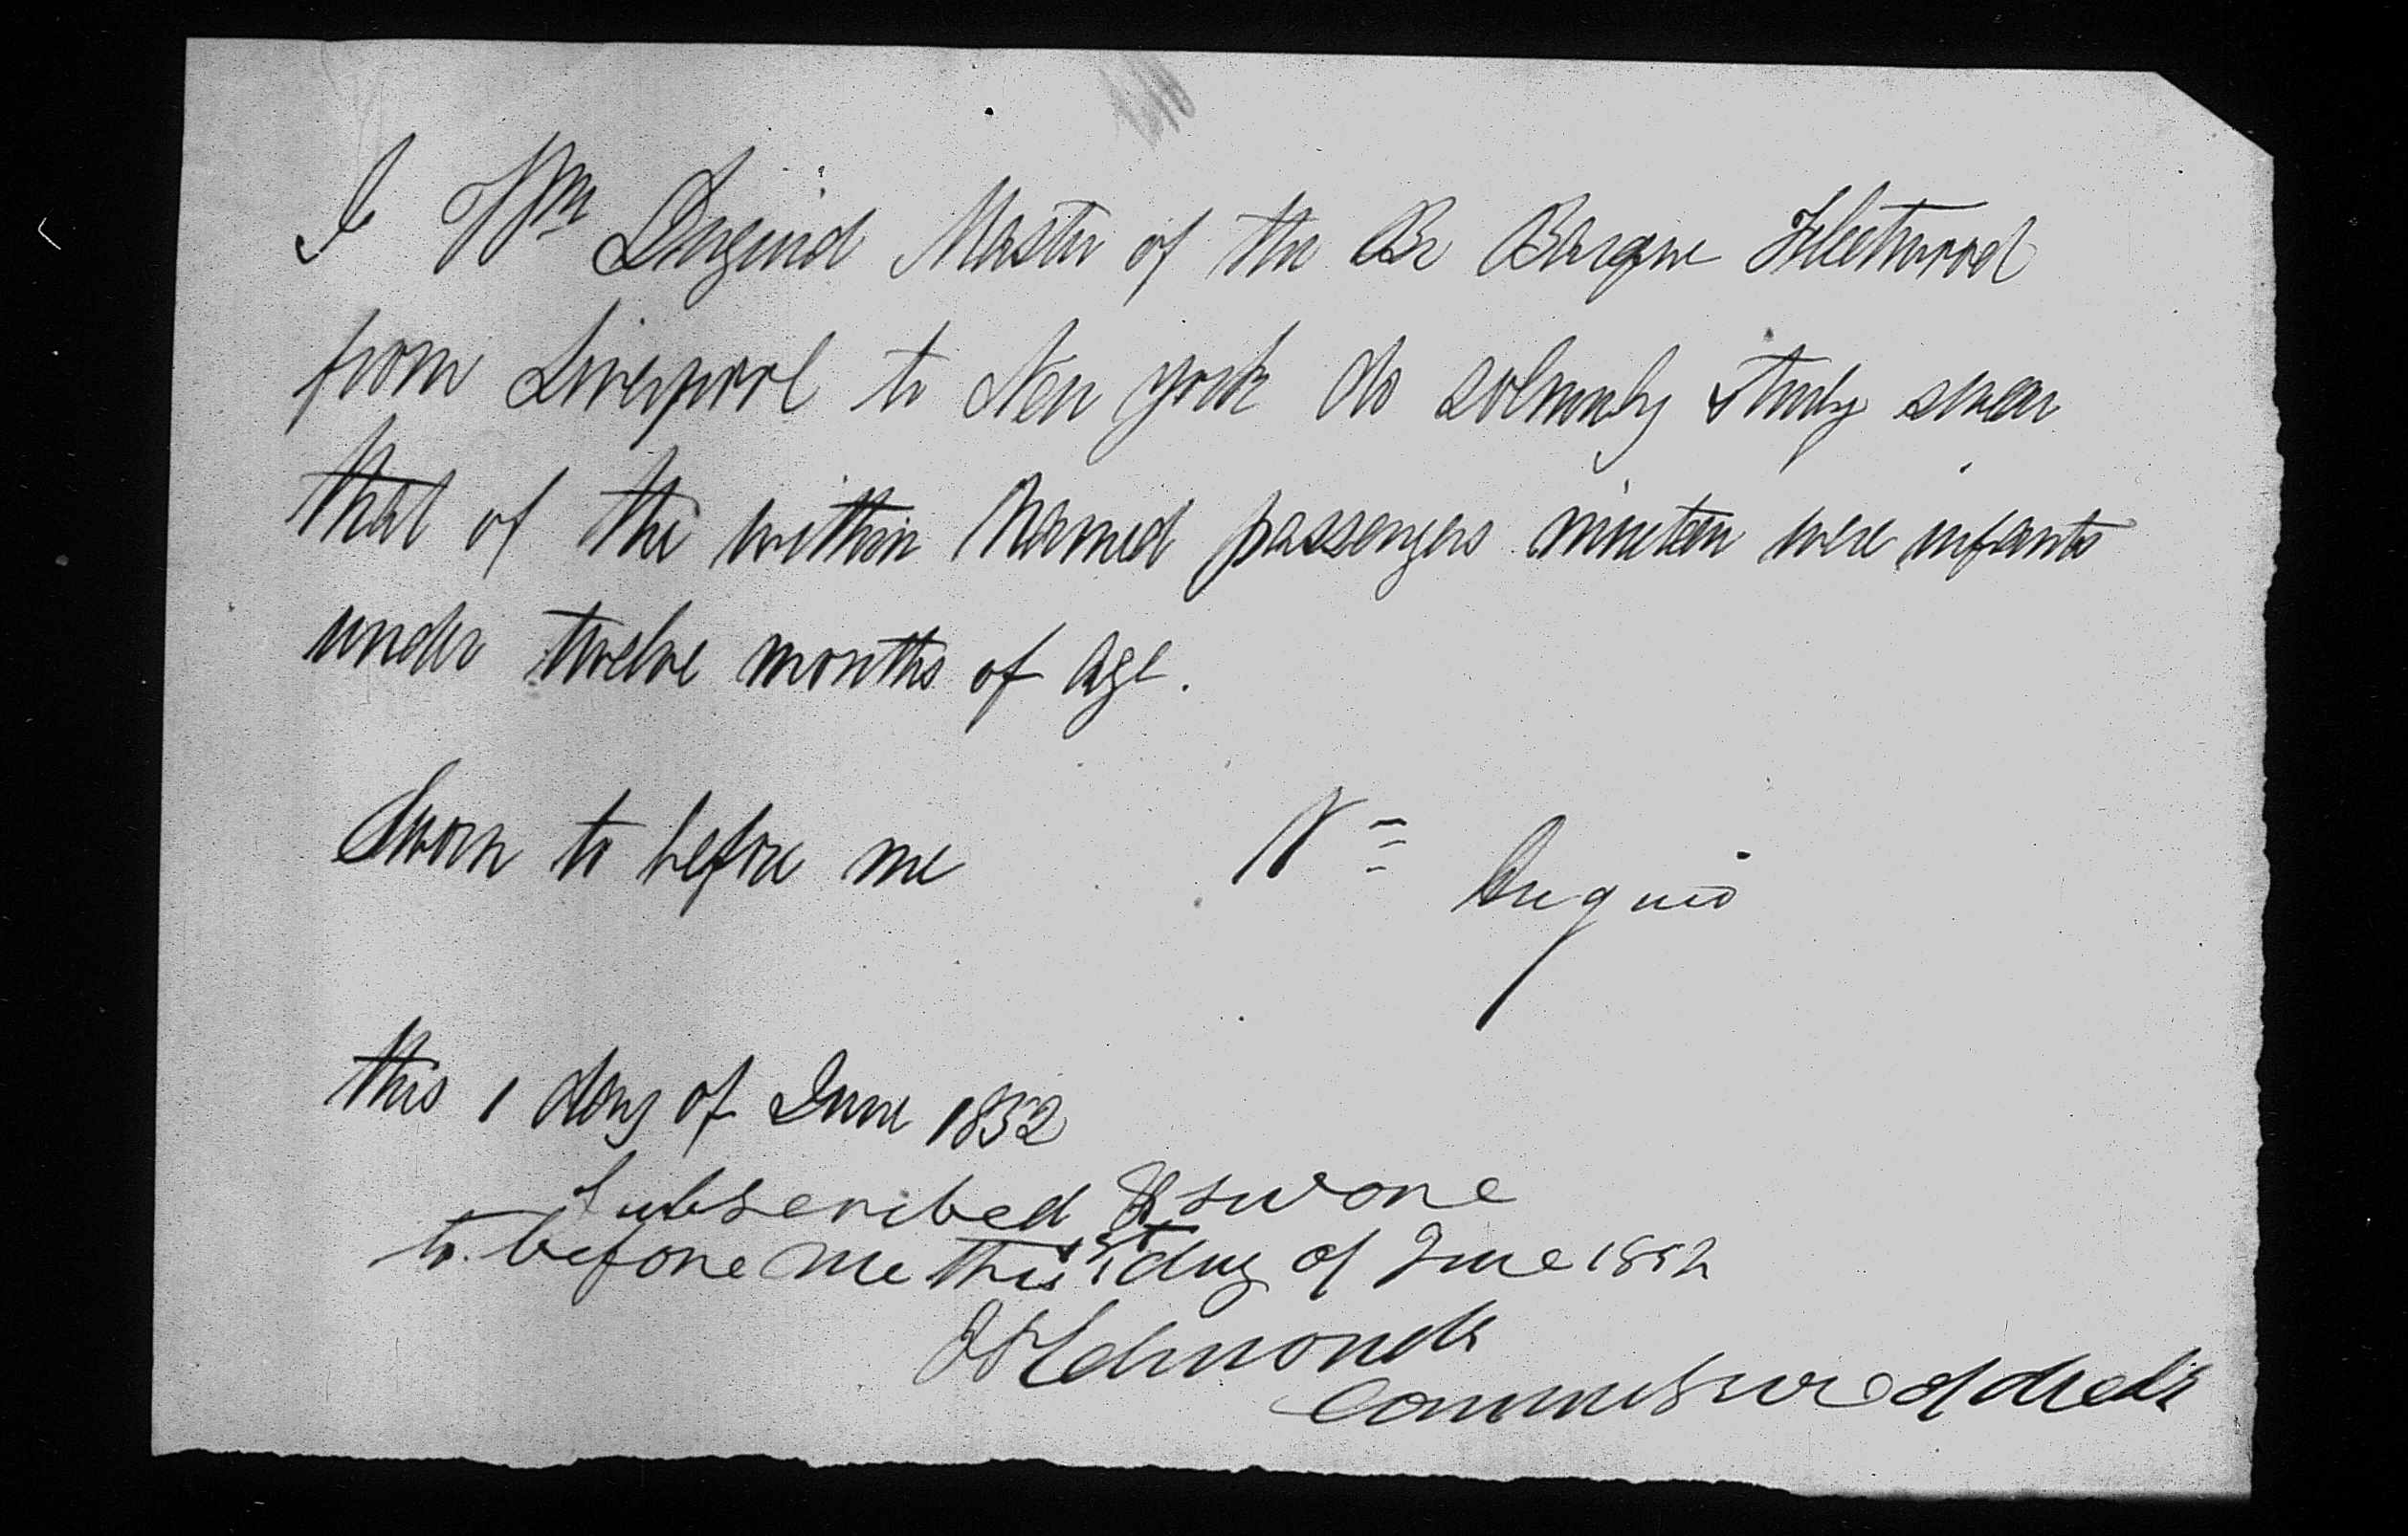 I Wm Duguid Master of the Br Barque Fleetwood
from Liverpool to New York do solemnly & truly swear
that of the within named passengers nineteen were infants
under twelve months of age.
Sworn to before me
Wm Duguid
this 1 day of June 1852
Subscribed & swore
to before me this 1st day of June 1852
Edmonds
of deeds